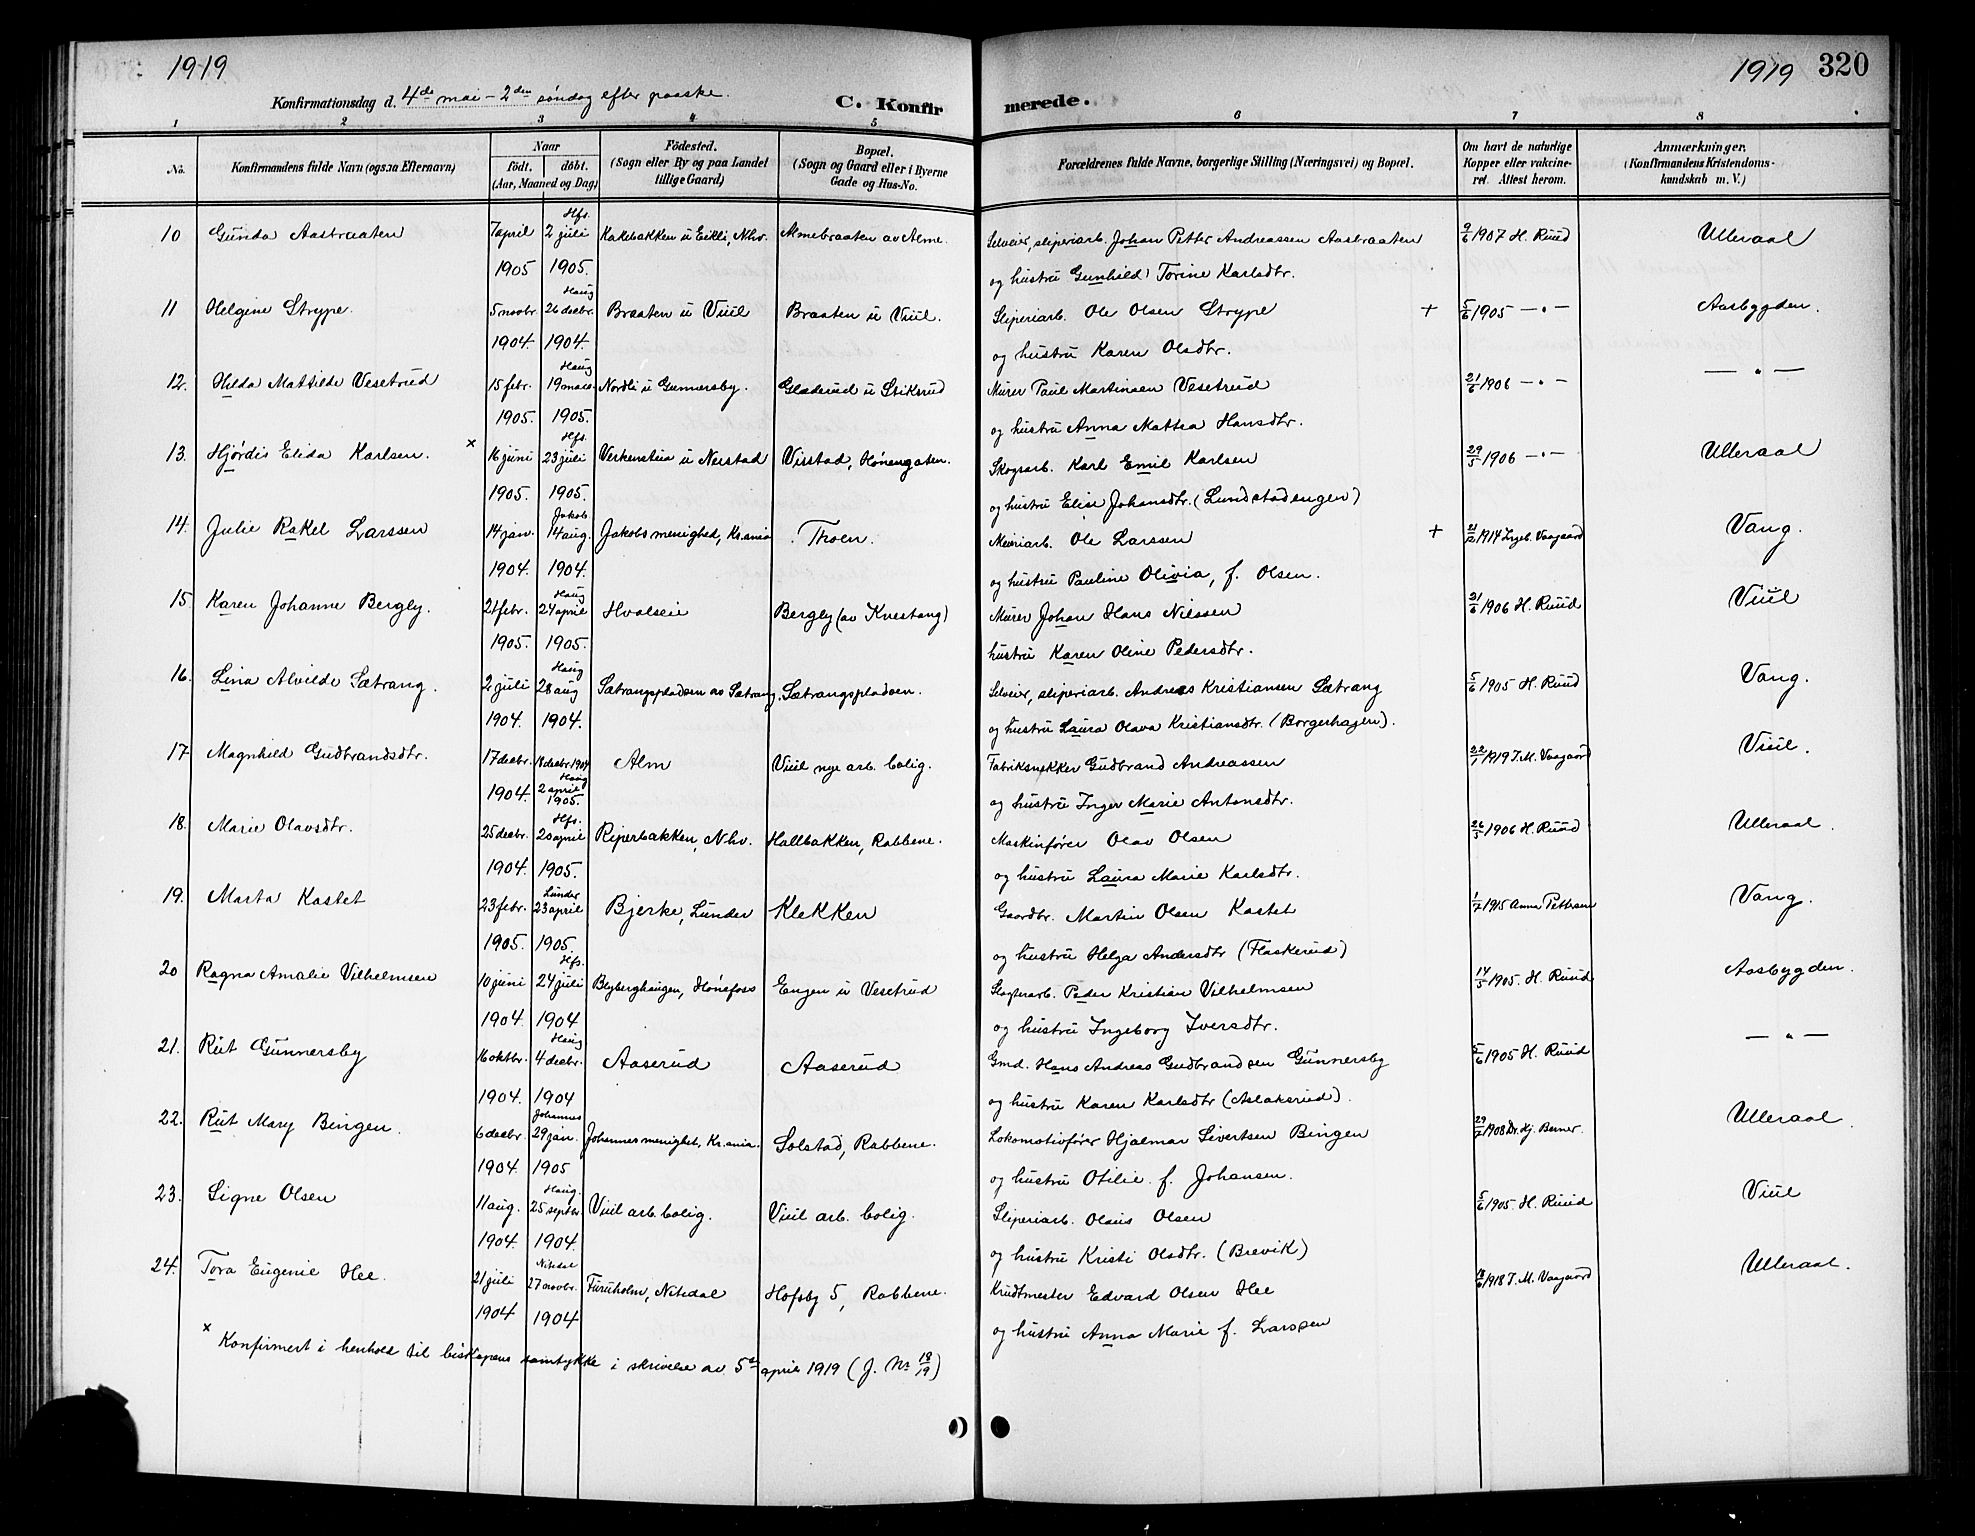 1919
1919 320
Konfirmationsdag d. 4de mai – 2den søndag efter paaske.
C. Konfirmerede.
1 2 3 4 5 6 7 8
No. Konfirmandens fulde Navn (ogsaa Efternavn) Naar født. døbt. (Aar, Maaned og Dag) Fødested. (Sogn eller By og paa Landet tillige Gaard) Bopæl. (Sogn og Gaard eller i Byerne Gade og Hus-No. Forældrenes fulde Navne, borgerlige Stilling (Næringsvei) og Bopæl. Om havt de naturlige Kopper eller vakcineret. Attest herom. Anmærkninger. (Konfirmandens Kristendomskundskab m. V.)
Hfs.
10 Gunda Aasbraaten 7 april 2 juli Kakebakken u Eikli, Nhv. Almebraaten av Alme. Selveier, sliperiarb. Johan Petter Andreassen Aasbraaten 9/6 1907 H. Ruud Ulleraal
1905 1905. og hustru Gunhild Torine Karlsdtr.
Haug
11 Helgine Strype. 5 novbr. 26 decbr. Braaten u Viul Braaten u Viul. Sliperiarb. Ole Olsen Strype + 5/6 1905 — " — Aasbygden.
1904. 1904. og hustru Karen Olsdtr.
Haug
12. Hilda Mathilde Vesetrud 15 febr. 19 mars Nordli u Gunnersby. Gladerud u Stiksrud Murer Paul Martinsen Vesetrud 21/6 1906 — " — — " —
1905. 1905. og hustru Anna Mathea Hansdtr.
Hfs.
13. Hjørdis Elida Karlsen. × 16 juni 23 juli Verkensteia u Nerstad Visstad, Hønengaten. Skogsarb. Karl Emil Karlsen 29/5 1906 — " — Ulleraal
1905. 1905. og hustru Elise Johansdtr. (Lundstadengen)
Jakob
14. Julie Rakel Larssen 14 jan. 14 aug. Jakobs menighed, Kr.ania Thoen. Meieriarb. Ole Larssen + 1914 Ingeb. Vaagaard Vang.
1904. 1904. og hustru Pauline Olivia, f. Olsen.
Haug
15. Karen Johanne Bergly. 21 febr. 24 april Hvalseie Bergly (av Kvestang) Murer Johan Hans Nilssen 21/6 1906 H. Ruud Viul
1905. 1905. hustru Karen Oline Pedersdtr.
Haug
16. Lina Alvilde Sætrang. 2 juli 28 aug Sætrangspladsen av Sætrang. Sætrangspladsen. Selveier, sliperiarb. Andreas Kristiansen Sætrang 5/6 1905 H. Ruud Vang.
1904. 1904. og hustru Laura Olava Kristiansdtr. (Borgerhagen).
17. Magnhild Gudbrandsdtr. 17 decbr. 18 decbr. 1904 Alm Viul nye arb. bolig. Fabriksnekker Gudbrand Andreassen 22/1 1919 T. M. Vaagaard Viul.
1904. Haug 2 april 1905. og hustru Inger Marie Antonsdtr.
Hfs.
18. Marie Olavsdtr. 25 decbr. 20 april Riperbakken, Nhv. Hallbakken, Rabbene. Maskinfører Olav Olsen 26/5 1906 H. Ruud Ulleraal.
1904. 1905. og hustru Laura Marie Karlsdtr.
Lunder
19. Marta Kastet 23 febr. 23 april Bjerke, Lunder Klekken Gaardbr. Martin Olsen Kastet 1/7 1915 Anna Pettersen Vang.
1905. 1905. og hustru Helga Andersdtr (Flaskerud)
Hfs.
20 Ragna Amalie Vilhelmsen 10 juni 24 juli Blyberghaugen, Hønefoss Engen u Vesetrud Slagterarb. Peder Kristian Vilhelmsen 14/5 1905. H. Ruud Aasbygden.
1904. 1904 og hustru Ingeborg Iversdtr.
Haug
21. Rut Gunnersby 16 oktbr. 4 decbr. Aaserud Aaserud Gmd. Hans Andreas Gudbrandsen Gunnersby 5/6 1905 H. Ruud — " —
1904. 1904 og hustru Karen Karlsdtr (Aslaksrud).
Johannes
22. Rut Mary Bingen. 6 decbr. 29 jan. Johannes menighet, Kr.ania. Solstad, Rabbene. Lokomotivfører Hjalmar Sivertsen Bingen 1908 Dr. Hj. Berner. Ulleraal.
1904. 1905 og hustru Otilie f. Johansen.
Haug.
23. Signe Olsen 11 aug. 25 septbr. Viul arb. bolig. Viul arb. bolig. Sliperiarb. Olaus Olsen 5/6 1905. H. Ruud Viul
1904. 1904. og hustru Kristi Olsdtr. (Brevik)
Nitedal
24. Tora Eugenie Hee. 21 juli 27 novbr. Furuholm, Nitedal Hofsby 5, Rabbene. Krudtmester Edvard Olsen Hee 18/6 1918 T. M. Vaagaard Ulleraal.
1904 1904 og hustru Anna Marie f. Larssen
× Konfirmert i henhold til biskopens samtykke i skrivelse av 5te april 1919 (J. Nr 18/19)